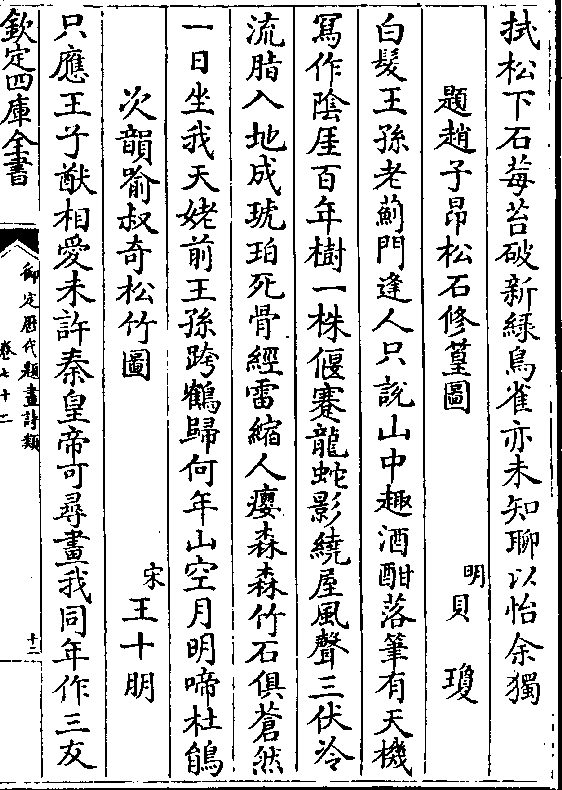 拭松下石莓苔破新緑鳥雀亦未知聊以怡余獨
題趙子昂松石修篁圖
明貝瓊
白髮王孫老薊門逢人只說山中趣酒酣落筆有天機
冩作陰厓百年樹一株偃蹇龍蛇影繞屋風聲三伏冷
流脂入地成琥珀死骨經雷縮人癭森森竹石俱蒼然
一日坐我天姥前王孫跨鶴歸何年山空月明啼杜鵑
次韻喻叔奇松竹圖
宋王十朋
只應王子猷相愛未許秦皇帝可尋畫我同年作三友
欽定四庫全書
御定歴代題畫詩類
卷七十二
十二